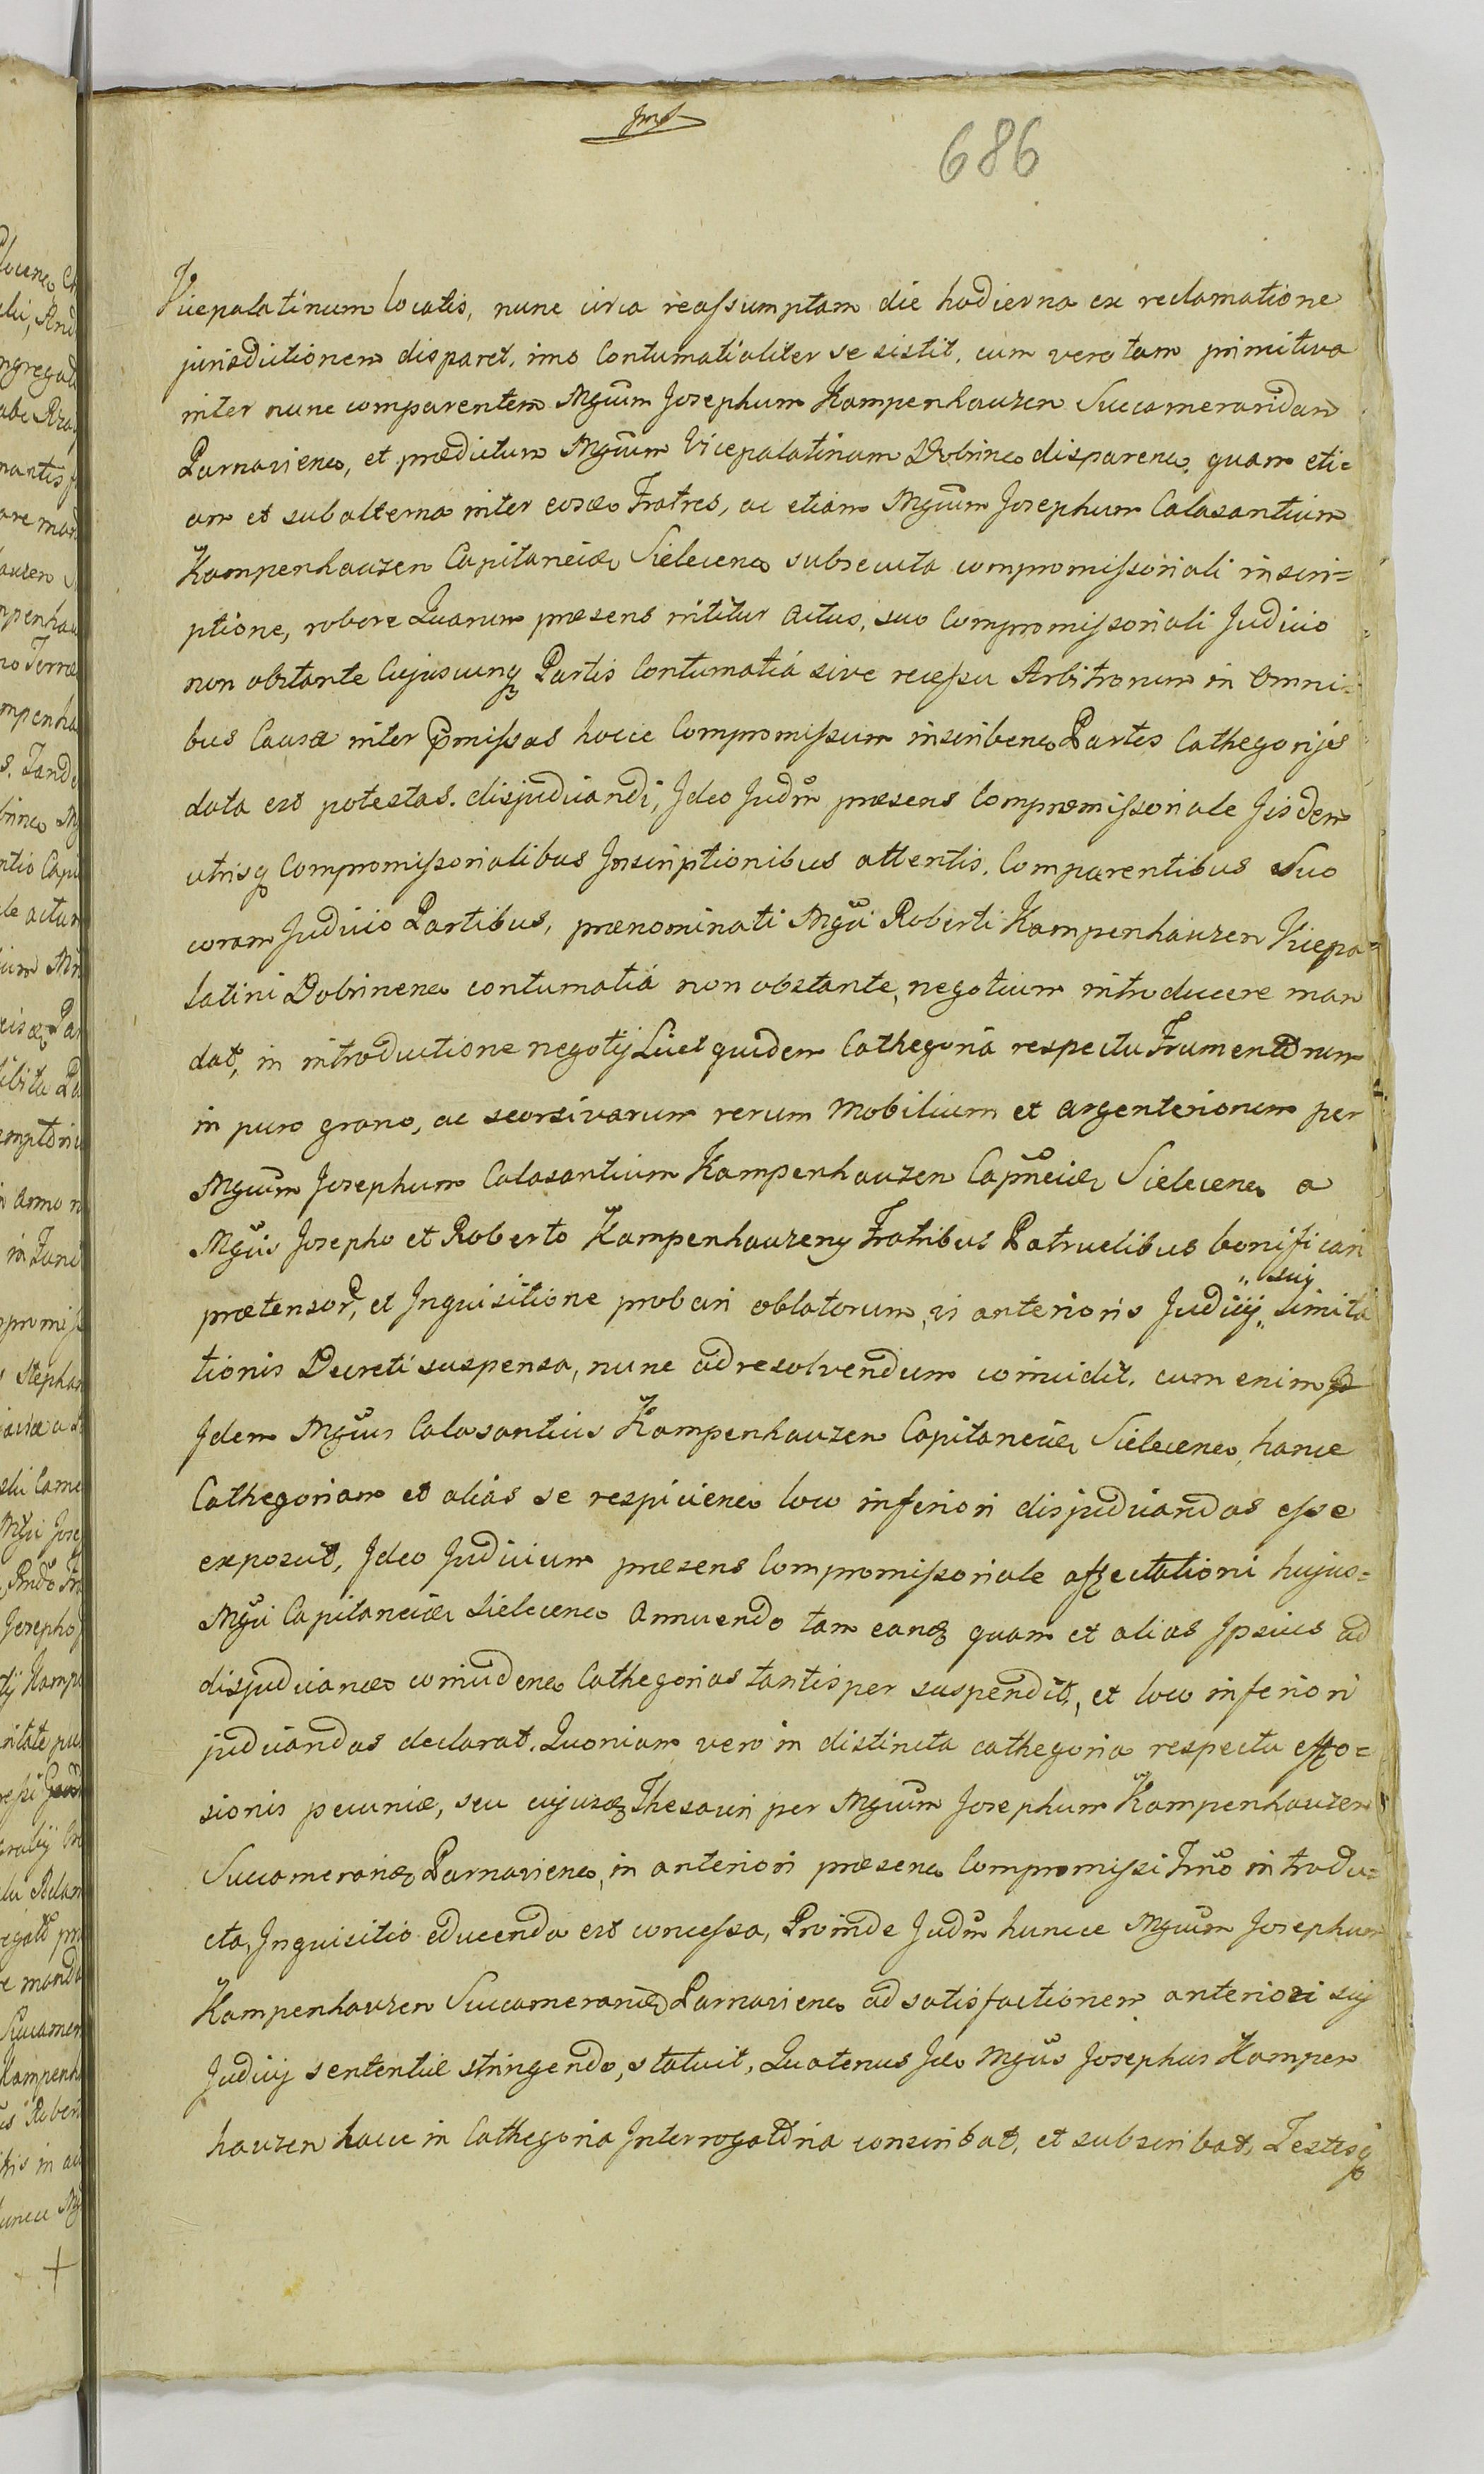 686
Vicepalatinum locatis, nunc circa reassumptam die hodierna ex reclamatione
jurisdictionem disparet, imo Contumatialiter se sistit, cum vero tam primitiva
inter nunc comparentem Mgcum Josephum Kampenhauzen Succameraridam
Parnavienẽ, et prædictum Mgcum Vicepalatinum Dobrinẽ disparenẽ, quam eti=
am et subalterna inter eosdẽ Fratres, ac etiam Mgcum Josephum Calasantium
Kampenhauzen Capitaneidẽ Sielecenẽ subsecuta compromissoriali inscri=
ptione, robore Quarum præsens nititur actus, suo Compromissoriali Judicio
non obstante Cujuscunq Partis Contumatiá sive recessu Arbitrorum in Omni=
bus Causæ inter p̃missas hocce Compromissum inscribenẽ Partes Cathegorijs
data est potestas disjudicandi, Ideo Judm præsens Compromissoriale Iisdem
utrisq Compromissorialibus Inscriptionibus attentis, Comparentibus Suo
coram Judicio Partibus, prænominati Mgci Roberti Kampenhauzen Vicepa=
latini Dobrinenẽ contumatiá non obstante, negotium introducere man
dat, in introductione negotij Licet quidem Cathegoria respectu Frumentorum
in puro grano, ac seorsivarum rerum Mobilium et argenteriorum per
Mgcum Josephum Calasantium Kampenhauzen Capñeidẽ Sielecenẽ a
Mgcis Josepho et Roberto Kampenhauzeny Fratribus Patruelibus bonificari
prætensor, et Inquisitione probari oblatorum, vi anterioris Judicij „ suij
„ Limita
tionis Decreti suspensa, nunc ad resolvendum coincidit, cum enim
Idem Mgcus Calasantius Kampenhauzen Capitaneidẽ Sielecenẽ, hance
Cathegoriam et alias se respicienẽ loco inferiori disjudicandas esse
exposuit, Ideo Judicium præsens Compromissoriale affectationi hujus=
Mgci Capitaneidẽ Sielecenẽ Annuendo tam eandẽ quam et alias Ipsius ad
disjudicandẽ coincidenẽ Cathegorias tantisper suspendit, et loco inferiori
judicandas declarat. Quoniam vero in distincta cathegoria respectu effo=
sionis pecuniæ, seu cujusdẽ Thesauri per Mgcum Josephum Kampenhauzen
Succameraridẽ Parnavienẽ, in anteriori præsenẽ Compromissi Trno introdu=
cta, Inquisitio educenda est concessa, Proinde Judm huncce Mgcum Josephum
Kampenhauzen Succameraridẽ Parnavienẽ ad satisfactionem anteriori suij
Judicij sententiæ stringendo, statuit, Quatenus Idẽ Mgcus Josephus Kampen
hauzen hacce in Cathegoria Interrogatoria conscribat, et subscribat, Testesq